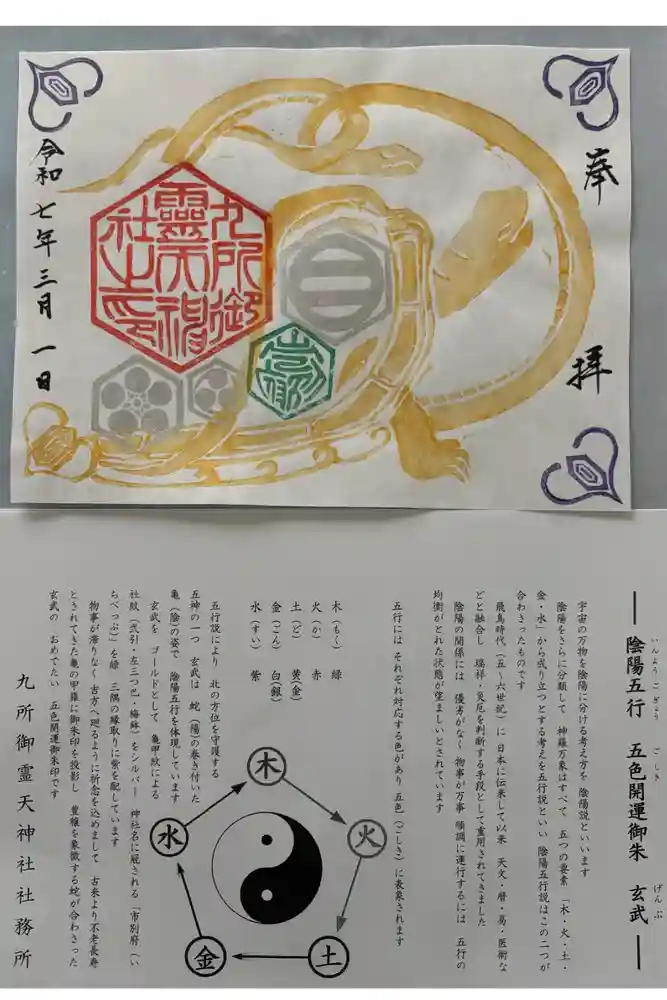 奉拝
九所御
靈天神
社之印
令和七年三月一日
陰陽五行 五色開運御朱 玄武
いんようごぎょう ごしき げんぶ
宇宙の万物を陰陽に分ける考え方を 陰陽説といいます
陰陽をさらに分類して 神羅万象はすべて 五つの要素「木・火・土・
金・水」から成り立つとする考えを五行説といい 陰陽五行説はこの二つが
合わさったものです
飛鳥時代（五〜六世紀）に 日本に伝来して以来 天文・暦・易・医術な
どと融合し 瑞祥・災厄を判断する手段として重用されてきました
陰陽の関係には 優劣がなく 物事が万事 順調に運行するには 五行の
均衡がとれた状態が望ましいとされています
五行には それぞれ対応する色があり 五色（ごしき）に表象されます
木（も〜） 緑
火（か） 赤
土（ど） 黄（金）
金（ごん） 白（銀）
水（すい） 紫
五行説により 北の方位を守護する
五神の一つ 玄武は 蛇（陽）の巻き付いた
亀（陰）の姿で 陰陽五行を体現しています
玄武を ゴールドとして 亀甲紋による
社紋（弐引・左三つ巴・梅鉢）をシルバー 神社名に冠される「市別府（い
ちべっぷ）」を緑 三隅の縁取りに紫を配しています
物事が滞りなく吉方へ廻るように祈念を込めまして 古来より不老長寿
とされてきた亀の甲羅に御朱印を投影し 豊穣を象徴する蛇が合わさった
玄武の おめでたい 五色開運御朱印です
九所御霊天神社社務所
木
火
土
金
水